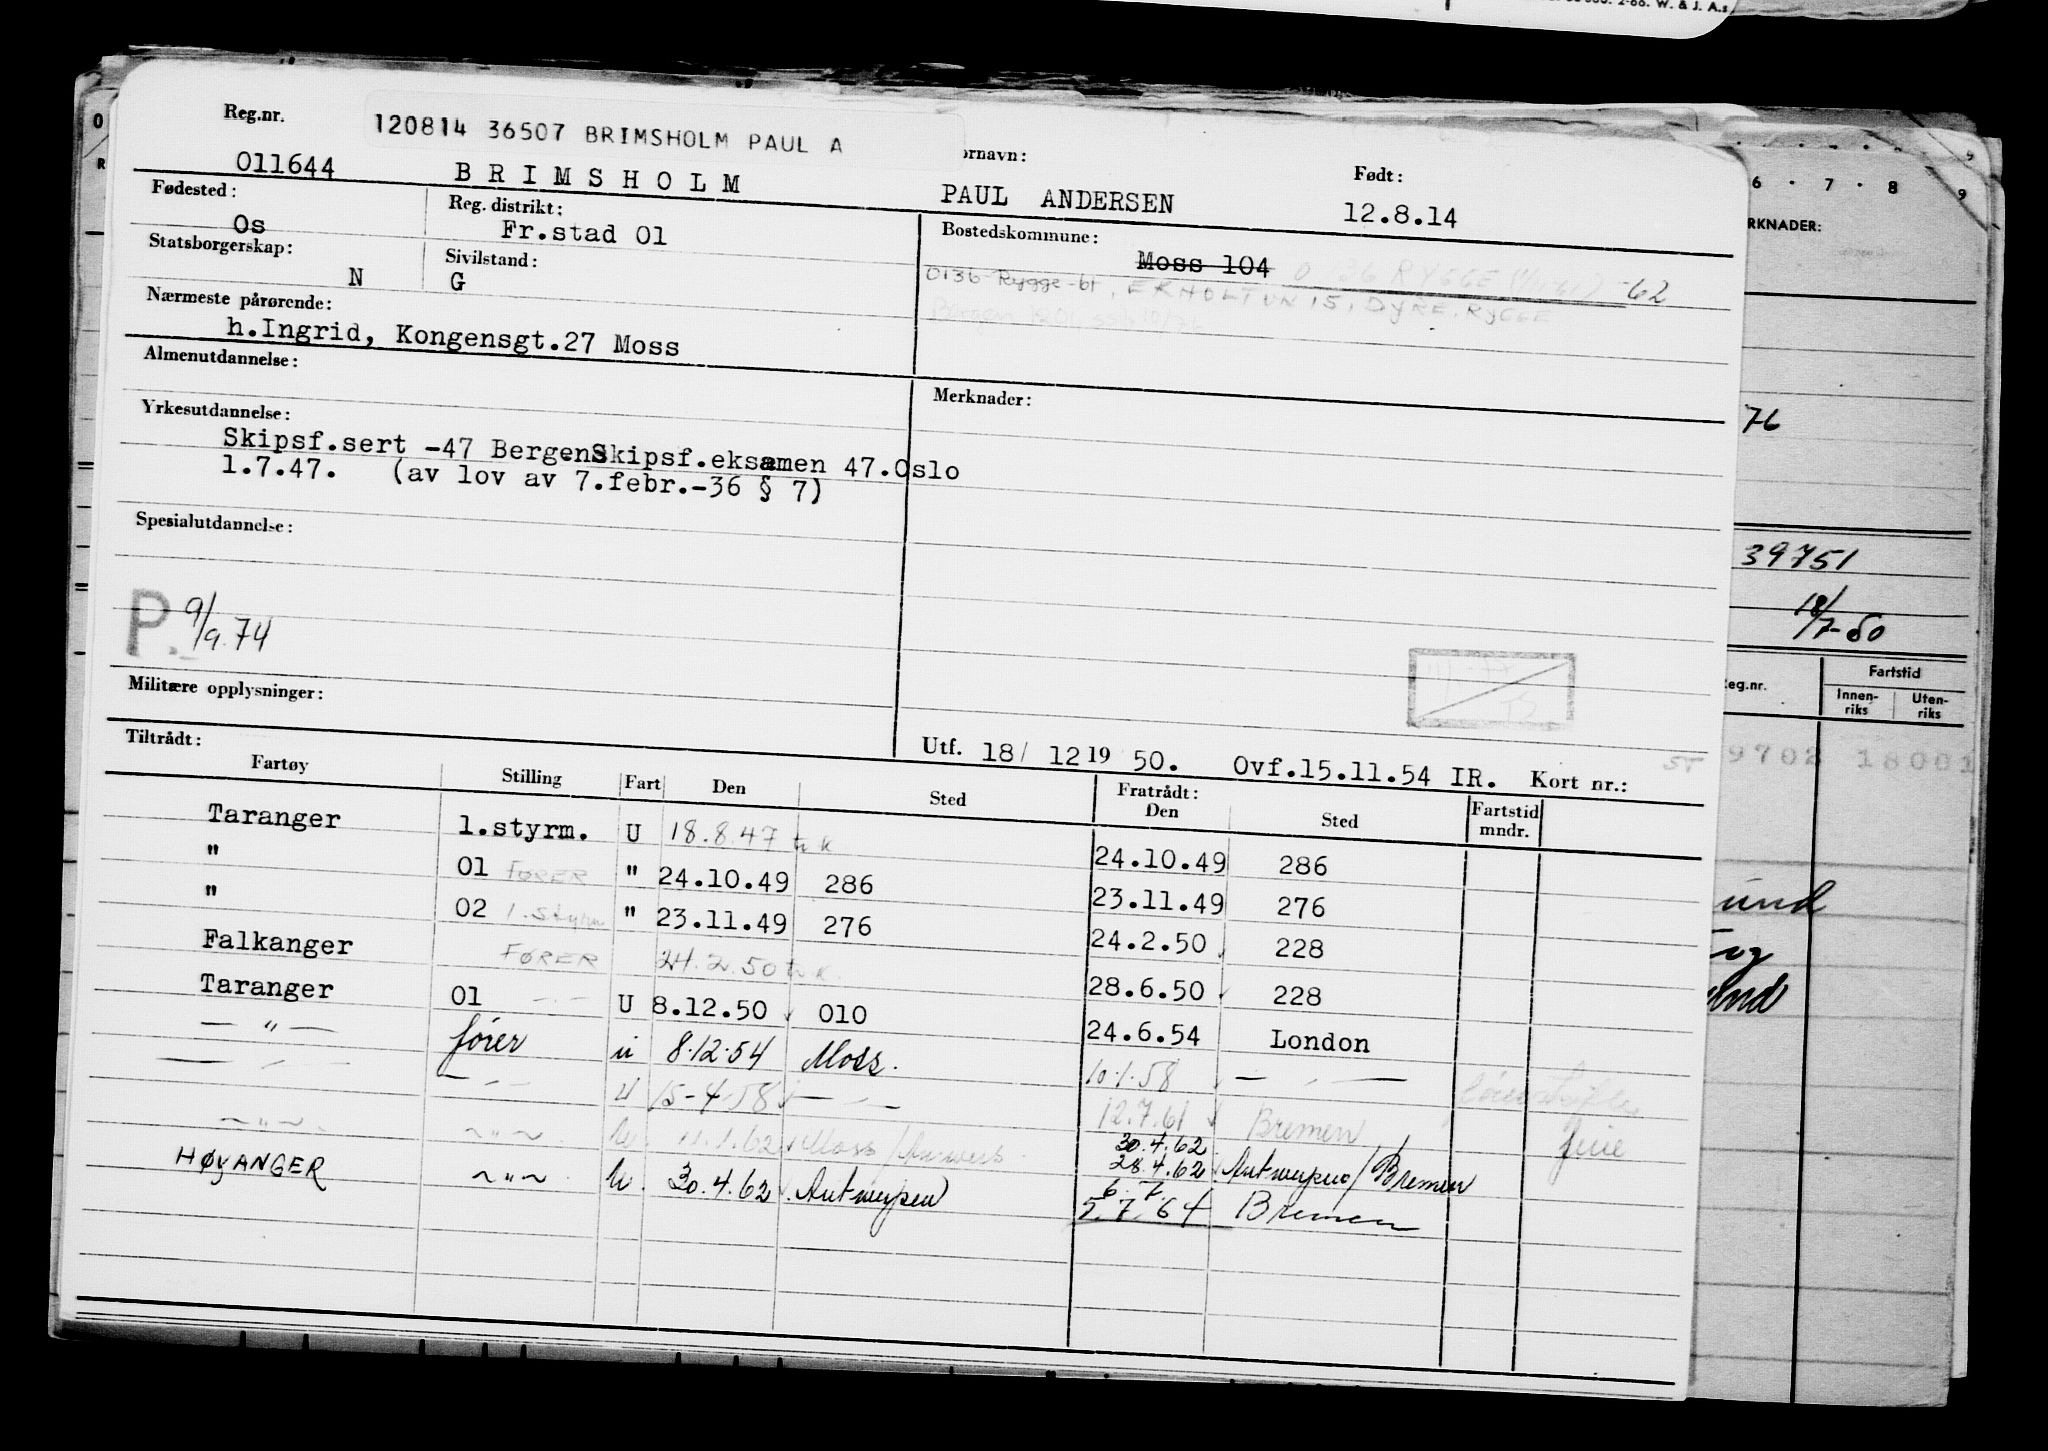 2-66. W. & J. A.s
Reg.nr. 120814 36507 BRIMSHOLM PAUL A
ornavn: Født:
011644 BRIMSHOLM PAUL ANDERSEN 12.8.14
Fødested: Reg. distrikt: Bostedskommune:
Os Fr.stad 01 Moss 104 0136 RYGGE -62
Statsborgerskap: Sivilstand:
N G 0136 Rygge -61, EKHOLTUN 15, DYRE, RYGGE
Nærmeste pårørende: Bergen
h.Ingrid, Kongensgt.27 Moss
Almenutdannelse: Merknader:
Yrkesutdannelse:
Skipsf.sert -47 Bergen Skipsf.eksamen 47.Oslo
1.7.47. (av lov av 7.febr.-36 § 7)
Spesialutdannelse:
P. 9/9.74
Militære opplysninger:
Utf. 18/ 12 19 50. Ovf.15.11.54 IR. Kort nr.: ST
Tiltrådt: Fratrådt:
Fartøy Stilling Fart Den Sted Den Sted Fartstid mndr.
Taranger 1.styrm. U 18.8.47 tr k 24.10.49 286
" 01 FØRER " 24.10.49 286 23.11.49 276
" 02 1.styrm " 23.11.49 276 24.2.50 228
Falkanger FØRER 24.2.50 tr k. 28.6.50 228
Taranger 01 — - — U 8.12.50 010 24.6.54 London
— " — fører u 8.12.54 Moss. 10.1.58 — , —
— - — — , — u 15-4-58 — , — 12.7.61 Bremen ferie
~ " ~ . ~ " ~ . u. 11.1.62 Moss / 30.4.62 28.4.62 Antwerpen / Bremen
HØYANGER ~ " ~ . u. 30.4.62 Antwerpen 6. 7. 5.7.64 Bremen
6 · 7 · 8
9
RKNADER:
76
39751
18/7-50
Reg.nr. Fartstid
Innenriks Utenriks
9702 18001
und
og